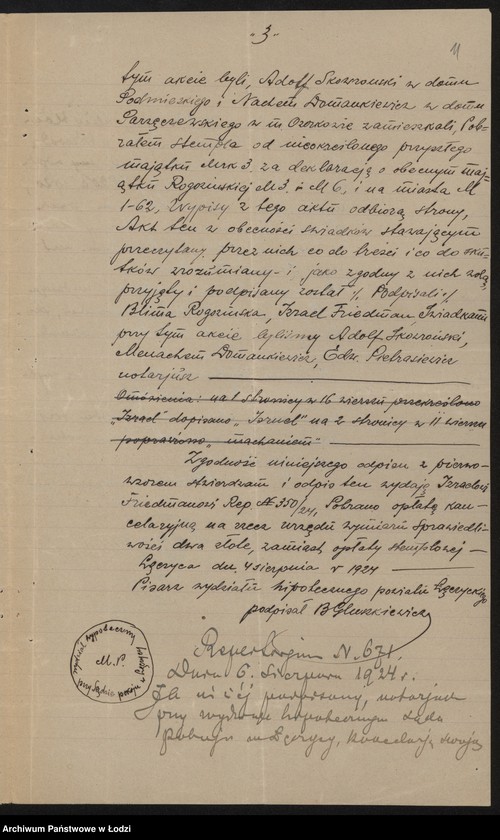 - 3 -
11
tym akcie byli, Adolf Skowroński w domu
Podmieskiego i Nachem Domankiewicz w domu
Parzęczewskiego w m. Ozorkowie zamieszkali, Pob-
rałem stempla od nieokreślonego przyszłego
majątku Mrk 3, za deklaracją o obecnym maj-
ątku Rogozińskiej M 3. i M 6, i na miasta M
1-62, Wypisy z tego aktu odbiorą strony,
Akt ten w obecności świadków stawającym
przeczytany, przez nich co do treści i co do sku-
tków zrozumiany - i jako zgodny z nich wolą,
przyjęty i podpisany został /. Podpisali:/
Blima Rogozinska, Izrael Friedman, Świadkami
przy tym akcie byliśmy Adolf Skowroński,
Menachem Domankiewicz, Edw. Pietrasiewicz
notarjusz
Omówienia: na 1 stronicy w 16 wierszu przekreślono
"Izrael" dopisano "Izrael" na 2 stronicy w 11 wierszu
poprawiono "machaniem"
Zgodność niniejszego odpisu z pierwo-
wzorem stwierdzam i odpis ten wydaję Izraelowi
Friedmanowi Rep. № 350/24, Pobrano opłatę kan-
celaryjną na rzecz urzędu wymiaru sprawiedli-
wości dwa złote, zamiast opłaty stemplowej -
Łęczyca dn. 4 sierpnia r 1924
Pisarz wydziału hipotecznego powiatu Łęczyckiego
podpisał B Głuszkiewicz
Repertorjum N. 671.
Dnia 6. sierpnia 1924 r.
Ja niżej podpisany, notarjusz
przy wydziale hipotecznym Sądu
Pokoju w Łęczycy, kancelarję swoją
wydział hypoteczny
M. P.
przy Sądzie pokoju w Łęczycy
Archiwum Państwowe w Łodzi